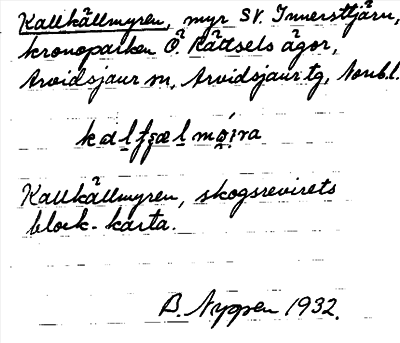 Kallkällmyren, myr SV. Innersttjärn,
kronoparken Ö. Rättsels ägor,
Arvidsjaur sn, Arvidsjaur tg, Norrb.l.
Kallkällmyren, skogsrevirets
block-karta.
B. Nygren 1932.